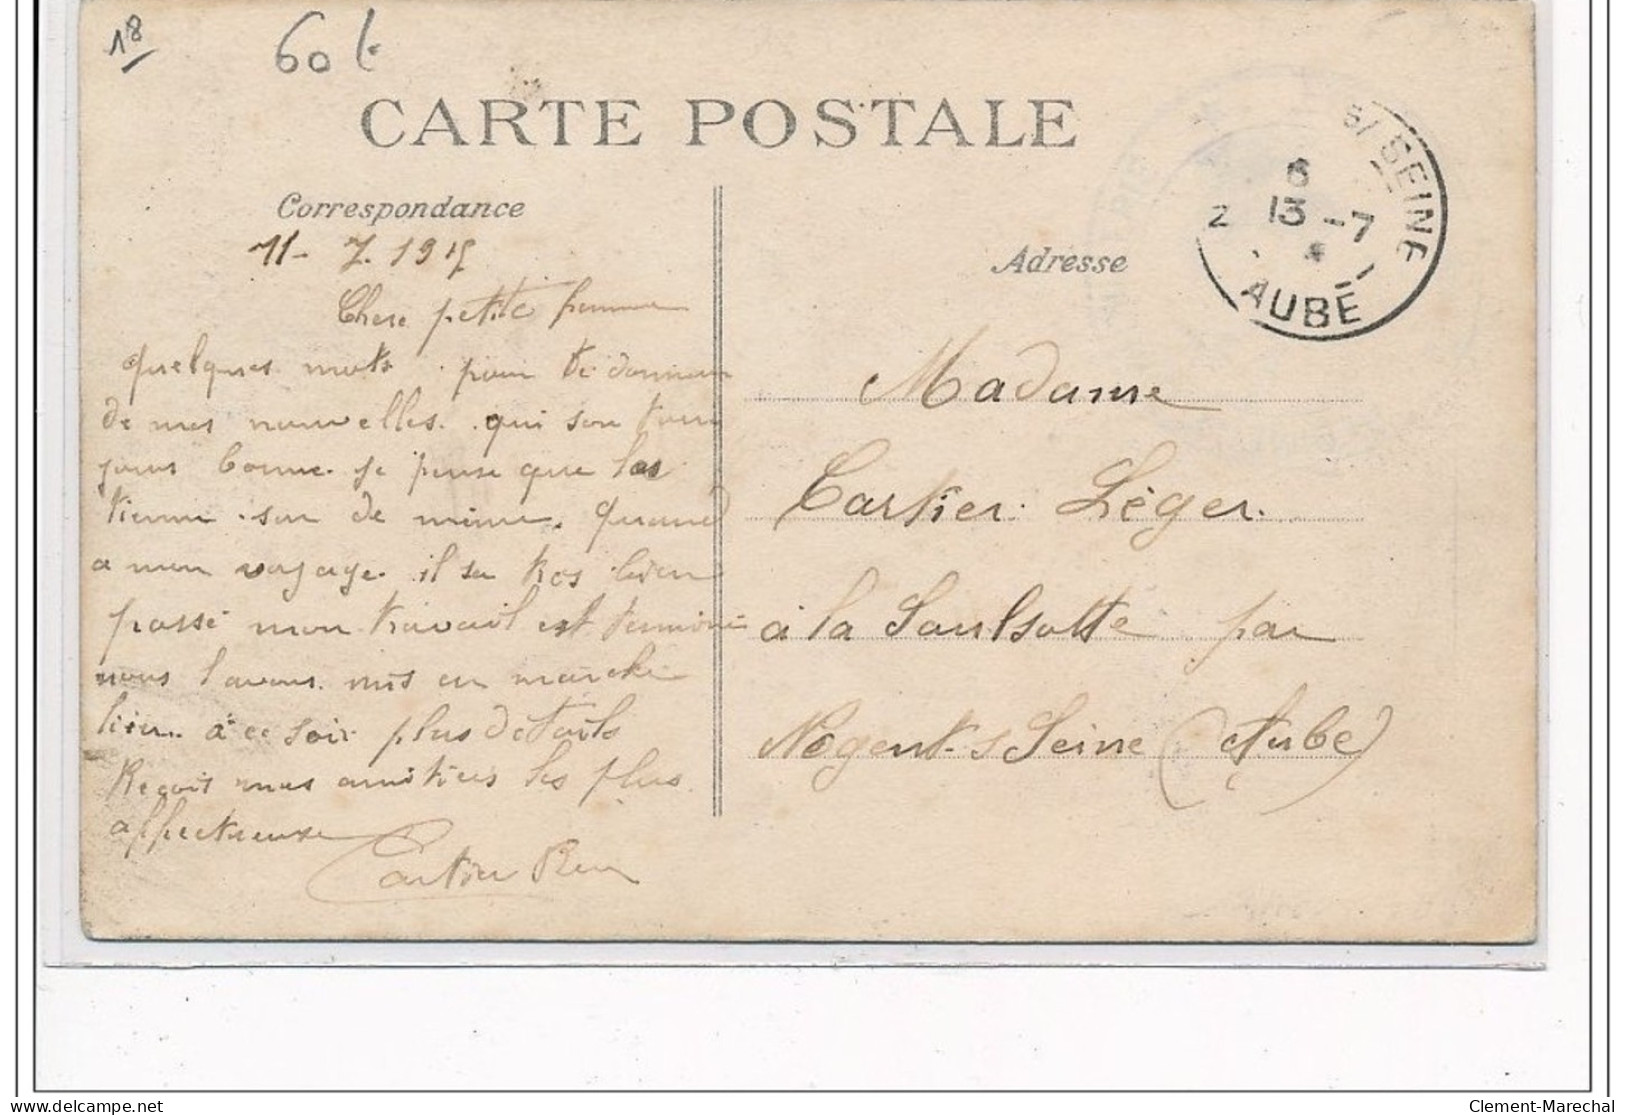 18
60
CARTE POSTALE
Correspondance
11- 7. 1915
Chere petite femme
quelques mots pour te donner
de mes nouvelles. qui son tou
jours bonne. je pense que les
tienne son de même. Quand
a mon voyage. il sa tres bien
passé mon travail est terminé
nous l'avons mis en marche
hier. à ce soir plus details
Reçois mes amitiées les plus
affectueuse
Cartier
Adresse
S/SEINE
6
2 13 -7
AUBE
Madame
Cartier Léger.
à la Saulsotte par
Nogent-s Seine (Aube)
Clement-Marechal